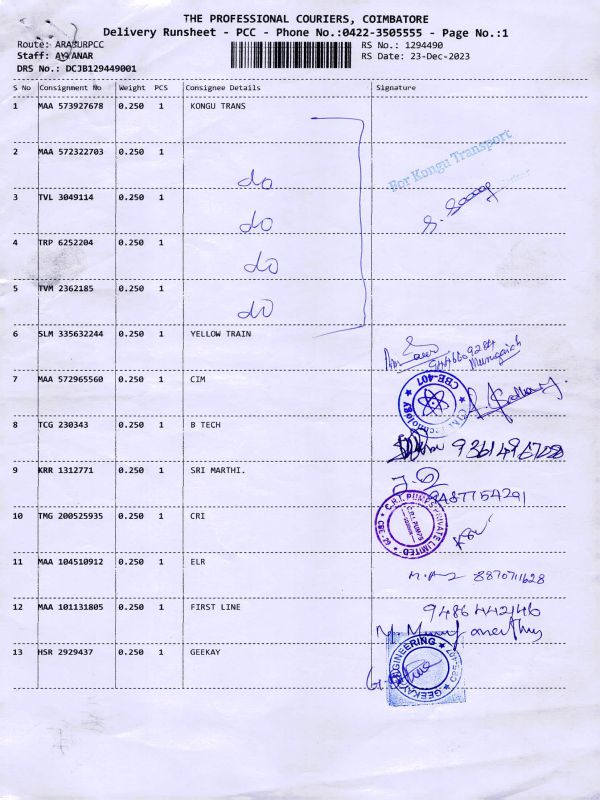 THE PROFESSIONAL COURIERS, COIMBATORE
Delivery Runsheet - PCC - Phone No.:0422-3505555 - Page No.:1
Route: ARASURPCC
RS No.: 1294490
Staff: AYYANAR
RS Date: 23-Dec-2023
DRS No.: DCJB129449001
S No Consignment No Weight PCS Consignee Details Signature
1 MAA 573927678 0.250 1 KONGU TRANS
For Kongu Transport
2 MAA 572322703 0.250 1
do
3 TVL 3049114 0.250 1
do
4 TRP 6252204 0.250 1
do
5 TVM 2362185 0.250 1
do
6 SLM 335632244 0.250 1 YELLOW TRAIN
Murugaiah
7 MAA 572965560 0.250 1 CIM
CBE-407
8 TCG 230343 0.250 1 B TECH
9 KRR 1312771 0.250 1 SRI MARTHI.
9487754291
10 TMG 200525935 0.250 1 CRI
C.R.I. PUMPS PRIVATE LIMITED
11 MAA 104510912 0.250 1 ELR
8870711628
12 MAA 101131805 0.250 1 FIRST LINE
9486442146
13 HSR 2929437 0.250 1 GEEKAY
GEEKAY ENGINEERING